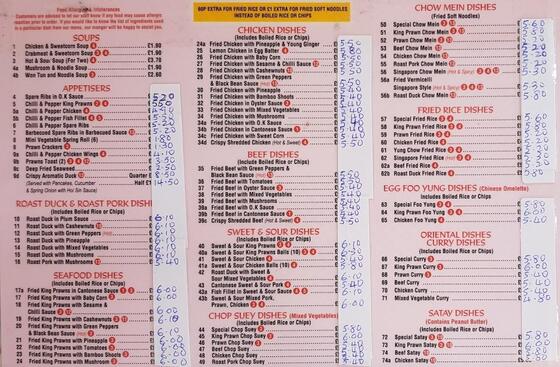 Food Allergies & Intolerances
Customers are advised to let our staff know if they may cause allergic
reaction prior to order. If you would like to know the list of ingredients used
in a particular dish from our menu, our manger will be happy to assist you.
SOUPS
1 Chicken & Sweetcorn Soup 4 £1.90
2 Crabmeat & Sweetcorn Soup £1.90
3 Hot & Sour Soup (For Two) £3.70
4a Mushroom & Noodle Soup £1.90
4b Won Ton and Noodle Soup £2.60
APPETISERS
4 Spare Ribs in O.K Sauce 5.20
5 Chilli & Pepper King Prawns 5.50
5a Chilli & Pepper Chicken
5b Chilli & Pepper Fish Fillet
6 Chilli & Pepper Spare Ribs
7 Barbecued Spare Ribs in Barbecued Sauce 5.20
8 Mini Vegetable Spring Roll (6) 1.80
9 Prawn Crackers 1.30
9a Chilli & Pepper Chicken Wings 4.10
9b Prawns Toast (2)
9c Deep Fried Seaweed
9d Crispy Aromatic Duck Quarter £ 8.50
(Served with Pancakes, Cucumber Half £ 14.50
& Spring Onion with Hoi Sin Sauce)
ROAST DUCK & ROAST PORK DISHES
(Includes Boiled Rice or Chips)
10 Roast Duck in Plum Sauce 6.10
11 Roast Duck with Cashewnuts 6.10
12 Roast Duck with Green Peppers 6.10
13 Roast Duck with Pineapple 6.10
14 Roast Duck with Mixed Vegetables 6.10
15 Roast Duck with Mushrooms 6.10
16 Roast Pork with Mushrooms 5.40
SEAFOOD DISHES
(Includes Boiled Rice or Chips)
17a Fried King Prawns in Cantonese Sauce 6.00
17 Fried King Prawns with Baby Corn 6.00
18 Fried King Prawns with Sesame &
Chilli Sauce 6.00
19 Fried King Prawns with Cashewnuts
20 Fried King Prawns with Green Peppers
& Black Bean Sauce 6.10
21 Fried King Prawns with Pineapple 6.00
22 Fried King Prawns with Tomatoes 6.00
23 Fried King Prawns with Bamboo Shoots 6.00
24 Fried King Prawns with Mushrooms 6.00
90P EXTRA FOR FRIED RICE OR £1 EXTRA FOR FRIED SOFT NOODLES
INSTEAD OF BOILED RICE OR CHIPS
CHICKEN DISHES
(Includes Boiled Rice or Chips)
24a Fried Chicken with Pineapple & Young Ginger 5.50
25 Lemon Chicken in Egg Batter 5.80
26 Fried Chicken with Baby Corn 5.50
27 Fried Chicken with Sesame & Chilli Sauce 5.50
28 Fried Chicken with Cashewnuts 5.50
29 Fried Chicken with Green Peppers
& Black Bean Sauce 5.50
30 Fried Chicken with Pineapple 5.40
31 Fried Chicken with Bamboo Shoots 5.40
32 Fried Chicken in Oyster Sauce 5.40
33 Fried Chicken with Mixed Vegetables 5.40
34 Fried Chicken with Mushrooms 5.40
34a Fried Chicken with O.K Sauce 5.40
34b Fried Chicken in Cantonese Sauce 5.40
34c Fried Chicken with Sweet Corn 5.40
34d Crispy Shredded Chicken (Hot & Sweet) 5.50
BEEF DISHES
(Include Boiled Rice or Chips)
35 Fried Beef with Green Peppers &
Black Bean Sauce 5.50
36 Fried Beef with Tomatoes 5.40
37 Fried Beef in Oyster Sauce 5.40
38 Fried Beef with Mixed Vegetables 5.40
39 Fried Beef with Mushrooms 5.40
39a Fried Beef with O.K Sauce 5.40
39b Fried Beef in Cantonese Sauce 5.40
39c Crispy Shredded Beef (Hot & Sweet) 5.50
SWEET & SOUR DISHES
(Includes Boiled Rice or Chips)
40 Sweet & Sour King Prawns 6.10
40a Sweet & Sour King Prawns Balls (10)
41 Sweet & Sour Chicken 5.40
41a Sweet & Sour Chicken Balls (10) 5.80
42 Roast Duck with Sweet &
Sour Mixed Vegetables 6.10
43 Cantonese Sweet & Sour Pork 5.40
43a Fish Fillet in Sweet & Sour Sauce 6.10
43b Sweet & Sour Mixed Pork,
Prawn, Chicken 6.00
CHOP SUEY DISHES (Mixed Vegetables)
(Includes Boiled Rice or Chips)
44 Special Chop Suey 5.80
45 King Prawn Chop Suey 6.00
46 Prawn Chop Suey 5.80
47 Beef Chop Suey 5.40
48 Chicken Chop Suey 5.40
49 Roast Pork Chop Suey 5.40
CHOW MEIN DISHES
(Fried Soft Noodles)
50 Special Chow Mein
51 King Prawn Chow Mein
52 Prawn Chow Mein
53 Beef Chow Mein
54 Chicken Chow Mein
55 Roast Pork Chow Mein
56 Singapore Chow Mein (Hot & Spicy)
56a Fried Vermicelli
Singapore Style (Hot & Spicy)
56b Roast Duck Chow Mein 5.80
FRIED RICE DISHES
57 Special Fried Rice 5.60
58 King Prawn Fried Rice
59 Prawn Fried Rice
60 Chicken Fried Rice
61 Yung Chow Fried Rice
62 Singapore Fried Rice
62a Beef Fried Rice
62b Roast Duck Fried Rice 5.80
EGG FOO YUNG DISHES (Chinese Omelette)
(Includes Boiled Rice or Chips)
63 Special Foo Yung 5.80
64 King Prawn Foo Yung 6.00
65 Chicken Foo Yung 5.40
ORIENTAL DISHES
CURRY DISHES
(Includes Boiled Rice or Chips)
66 Special Curry 5.80
67 King Prawn Curry 6.00
68 Prawn Curry
69 Beef Curry 5.40
70 Chicken Curry 5.40
71 Mixed Vegetable Curry 4.80
SATAY DISHES
(Contains Peanut Butter)
(Includes Boiled Rice or Chips)
72 Special Satay 5.80
73 King Prawn Satay 6.00
74 Beef Satay
74a Chicken Satay